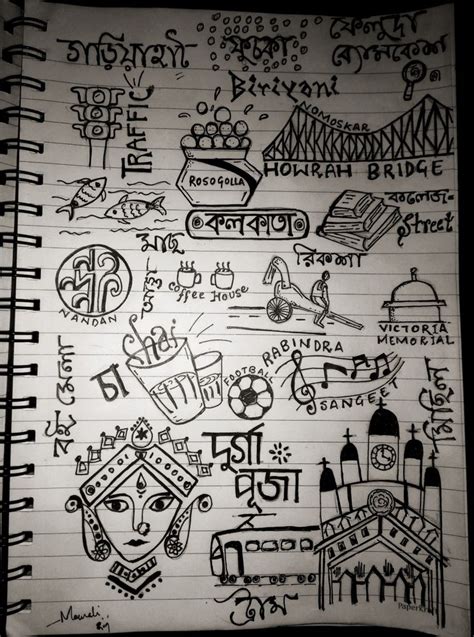 গড়িয়াহাট
ফুচকা
ফেলুদা
ব্যোমকেশ
Biriyani
TRAFFIC
NOMOSKAR
HOWRAH BRIDGE
ROSOGOLLA
কলকাতা
কলেজ-
Street
মাছ
আড্ডা
Coffee House
রিকশা
NANDAN
VICTORIA
MEMORIAL
বই মেলা
চা
Chai
FOOTBALL
RABINDRA
SANGEET
মিছিল
দুর্গা
পূজা
ট্রাম
PaperKraft